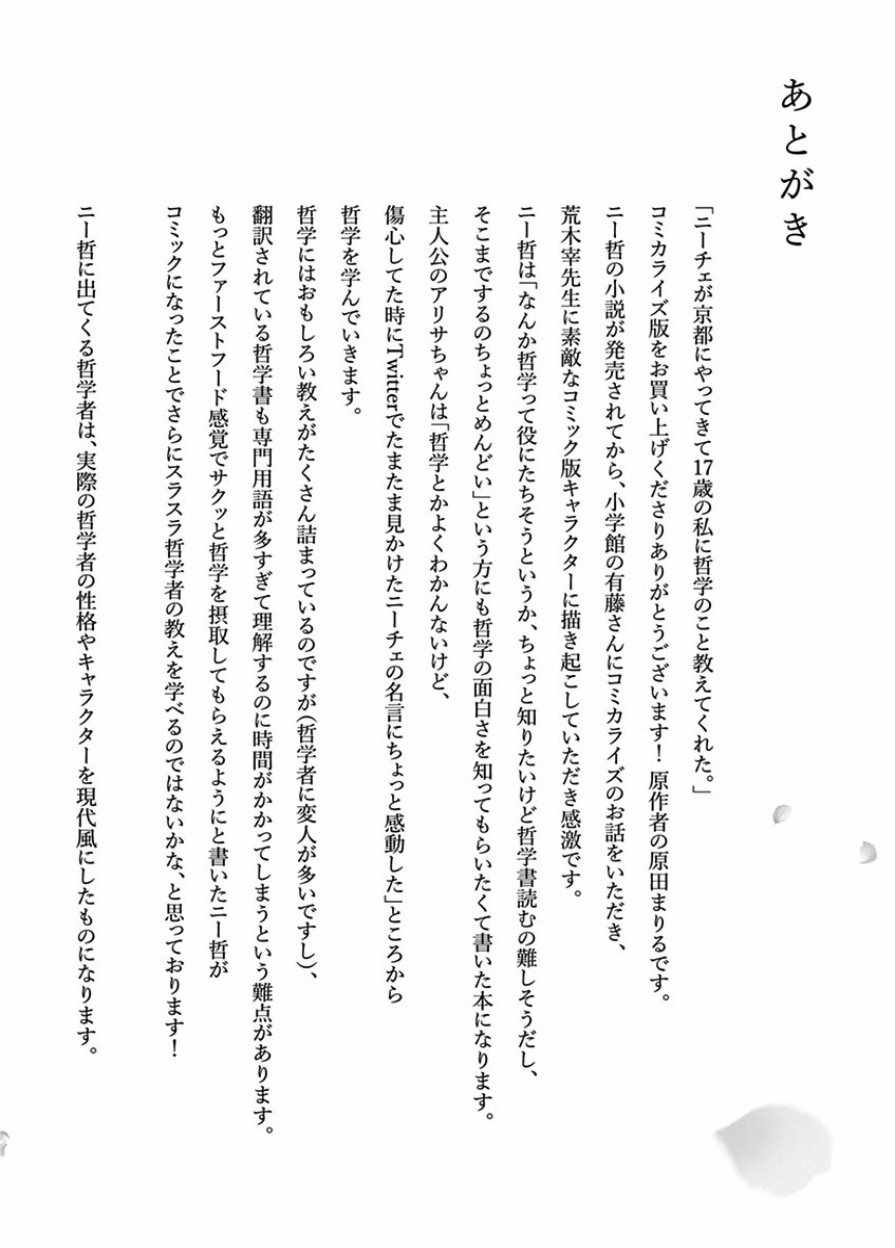 あとがき
「ニーチェが京都にやってきて17歳の私に哲学のこと教えてくれた。」
コミカライズ版をお買い上げくださりありがとうございます！ 原作者の原田まりるです。
ニー哲の小説が発売されてから、小学館の有藤さんにコミカライズのお話をいただき、
荒木宰先生に素敵なコミック版キャラクターに描き起こしていただき感激です。
ニー哲は「なんか哲学って役にたちそうというか、ちょっと知りたいけど哲学書読むの難しそうだし、
そこまでするのちょっとめんどい」という方にも哲学の面白さを知ってもらいたくて書いた本になります。
主人公のアリサちゃんは「哲学とかよくわかんないけど、
傷心してた時にTwitterでたまたま見かけたニーチェの名言にちょっと感動した」ところから
哲学を学んでいきます。
哲学にはおもしろい教えがたくさん詰まっているのですが（哲学者に変人が多いですし）、
翻訳されている哲学書も専門用語が多すぎて理解するのに時間がかかってしまうという難点があります。
もっとファーストフード感覚でサクッと哲学を摂取してもらえるようにと書いたニー哲が
コミックになったことでさらにスラスラ哲学者の教えを学べるのではないかな、と思っております！
ニー哲に出てくる哲学者は、実際の哲学者の性格やキャラクターを現代風にしたものになります。